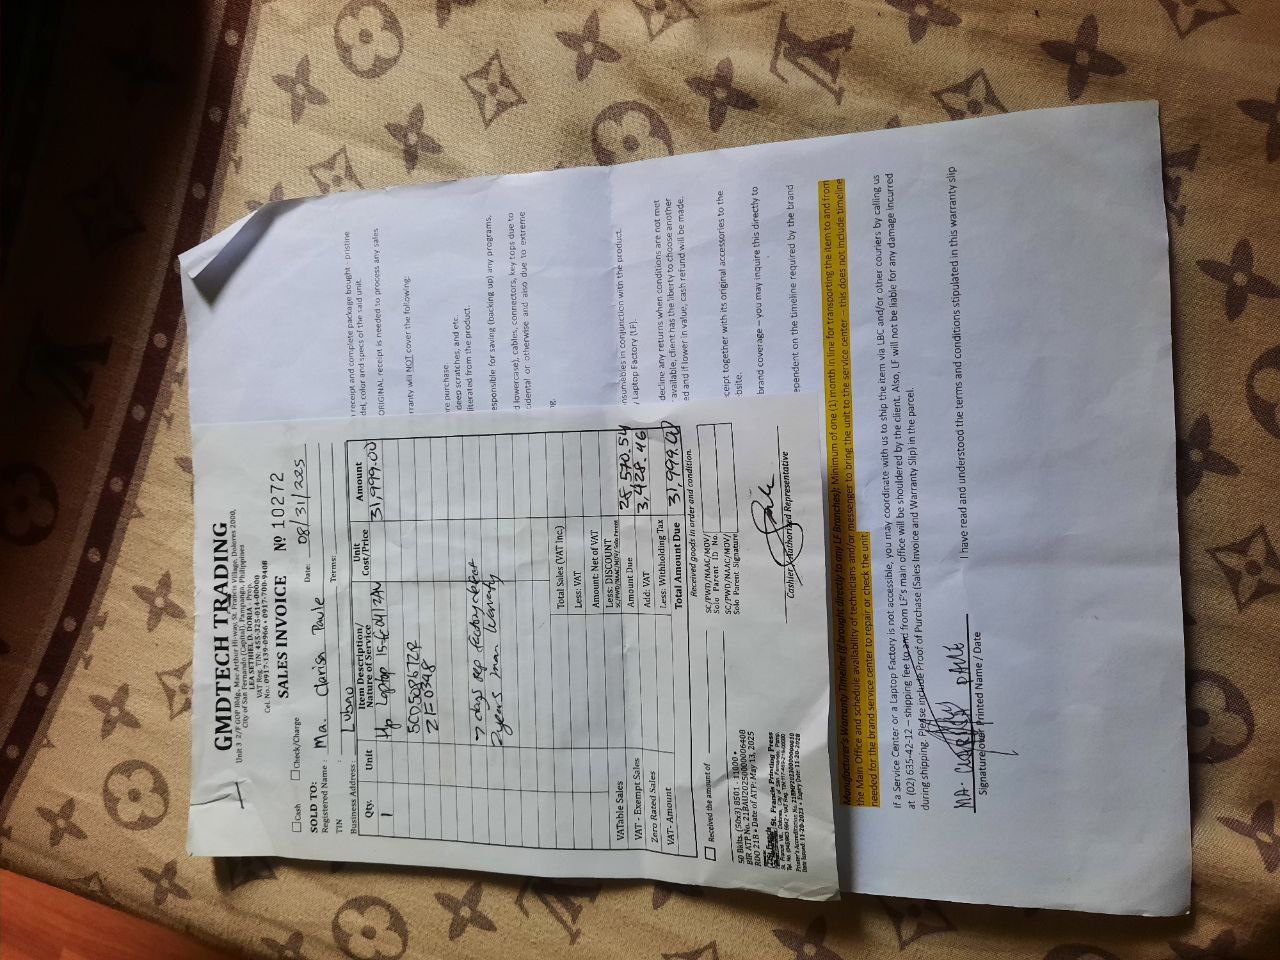 GMDTECH TRADING
Unit 3 2/F GOP Bldg. MacArthur Hi-way, St. Francis Village, Dolores 2000,
City of San Fernando (Capital), Pampanga, Philippines
LEA SETHIEL D. DORIA - Prop.
VAT Reg. TIN: 455-325-014-00000
Cel. No.: 0917-139-0966 • 0917-709-9408
SALES INVOICE Nº 10272
Cash Check/Charge Date: 08/31/2025
SOLD TO:
Registered Name : Ma. Clarisa Pale Terms:
TIN :
Business Address : Lubao
Qty. Unit Item Description/ Nature of Service Unit Cost/Price Amount
1 Hp laptop 31,999.00
7 days rep factory defect
2 years man warranty
Total Sales (VAT Inc.)
Less: VAT
Amount: Net of VAT
Less: DISCOUNT
VATable Sales Amount Due 28,570.54
VAT - Exempt Sales Add: VAT 3,428.46
Zero Rated Sales Less: Withholding Tax
VAT- Amount Total Amount Due 31,999.00
Received the amount of
Received goods in order and condition.
SC/PWD/NAAC/MOV/
Solo Parent ID No.
SC/PWD/NAAC/MOV/
Solo Parent Signature
50 Bklts. (50x3) 8501 - 11000 •
BIR ATP No. 21BAU20250000006408
RDO 21B • Date of ATP: May 13, 2025
St. Francis Printing Press
Cashier/Authorized Representative
receipt and complete package bought - pristine
del, color and specs of the said unit.
ORIGINAL receipt is needed to process any sales
rranty will NOT cover the following:
re purchase.
deep scratches, and etc.
literated from the product.
esponsible for saving (backing up) any programs,
d lowercase), cables, connectors, key tops due to
cidental or otherwise and also due to extreme
ng.
nsumables in conjunction with the product.
/ Laptop Factory (LF).
decline any returns when conditions are not met
available, client has the liberty to choose another
ed and if lower in value, cash refund will be made.
ceipt together with its original accessories to the
bsite.
brand coverage – you may inquire this directly to
ependent on the timeline required by the brand
Manufacturer's Warranty Timeline (if brought directly to any LF Branches): Minimum of one (1) month in line for transporting the item to and from
the Main Office and schedule availability of technicians and/or messenger to bring the unit to the service center – this does not include timeline
needed for the brand service center to repair or check the unit.
If a Service Center or a Laptop Factory is not accessible, you may coordinate with us to ship the item via LBC and/or other couriers by calling us
at (02) 635-42-12 – shipping fee to and from LF's main office will be shouldered by the client. Also, LF will not be liable for any damage incurred
during shipping. Please include Proof of Purchase (Sales Invoice and Warranty Slip) in the parcel.
I have read and understood the terms and conditions stipulated in this warranty slip
MA. CLARISA PALE
Signature over Printed Name / Date